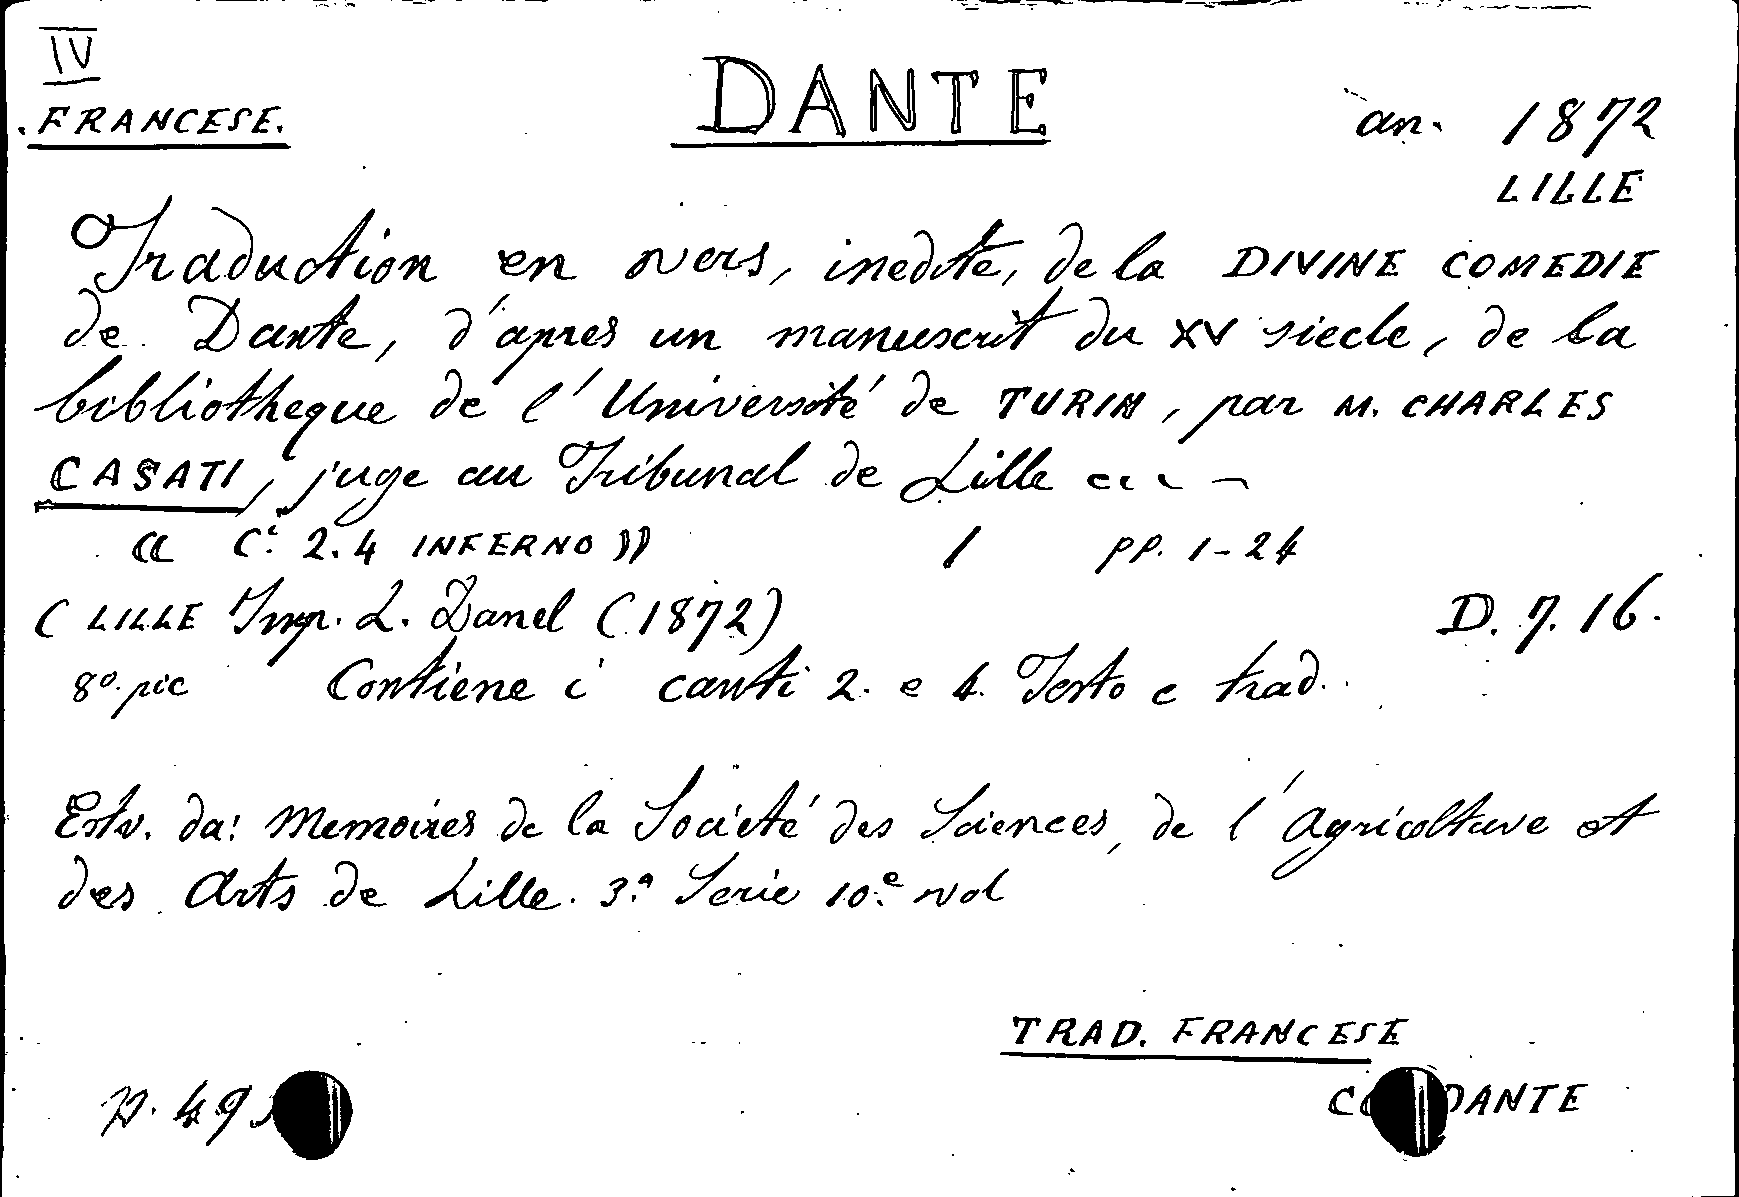 IV
. FRANCESE.
DANTE
an. 1872
LILLE
Traduction en vers, inedite, de la DIVINE COMEDIE
de Dante, d'apres un manuscrit du XV siecle, de la
bibliotheque de l'Université de TURIN, par M. CHARLES
CASATI, juge au Tribunal de Lille ....
(( Ci. 2.4 INFERNO )) / pp. 1-24
( LILLE Imp. L. Danel (1872)
D. 7. 16.
8º. pic Contiene i canti 2. e 4. Testo e trad.
Estr. da: Memoires de la Societé des Sciences, de l'Agricolture et
des Arts de Lille. 3.ª Serie 10.e vol
TRAD. FRANCESE
DANTE